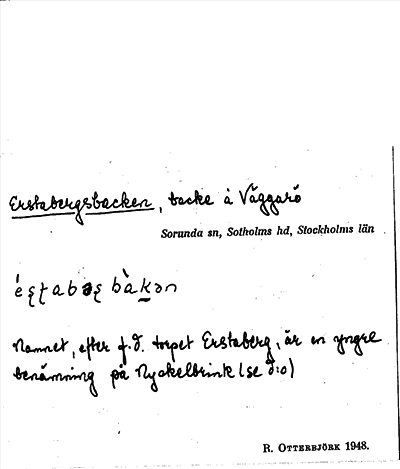 Erstabergsbacken, backe å Väggarö
Sorunda sn, Sotholms hd, Stockholms län
Namnet, efter f.d. torpet Erstaberg, är en yngre
benämning på Nyckelbrink (se d:o)
R. OTTERBJÖRK 1948.